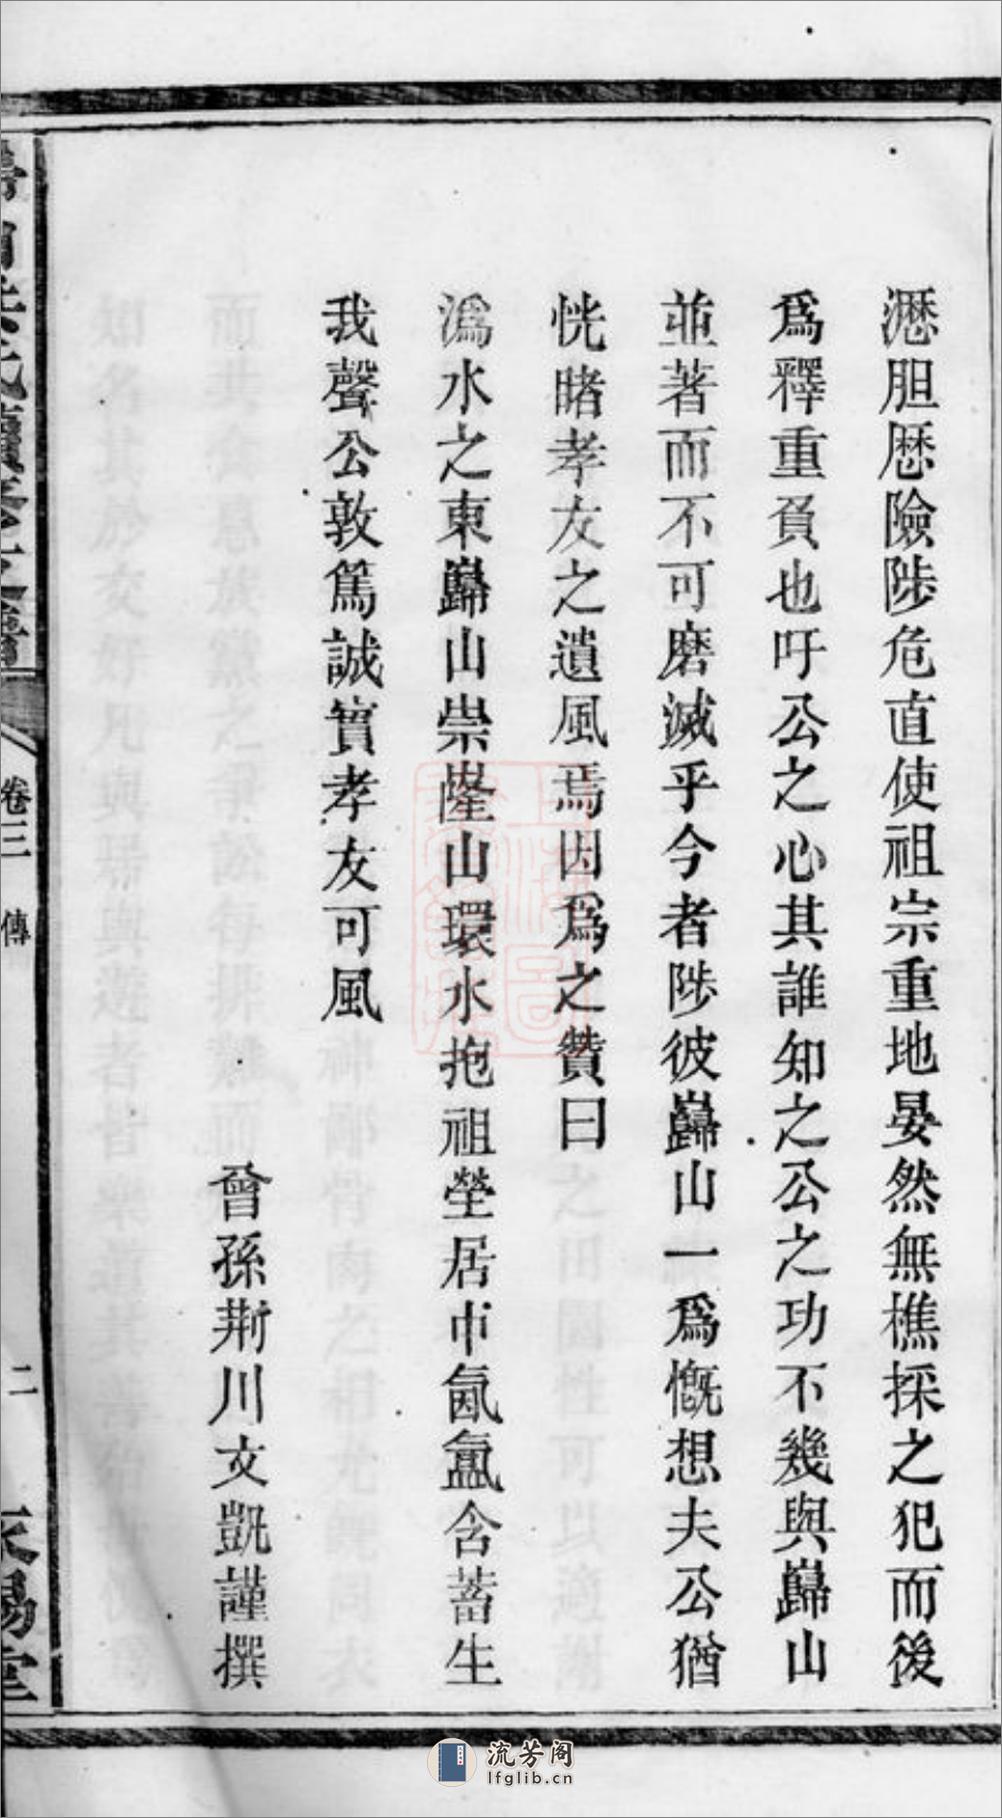 瀝胆厯險陟危直使祖宗重地晏然無樵採之犯而後
爲釋重負也吁公之心其誰知之公之功不幾與巋山
並著而不可磨滅乎今者陟彼巋山一爲慨想夫公猶
恍睹孝友之遺風焉因爲之贊曰
潙水之東巋山崇嶐山環水抱祖塋居中氤氳含蓄生
我聲公敦篤誠實孝友可風
曾孫荆川文凱謹撰
卷三 傳
二
流芳阁
lfglib.cn